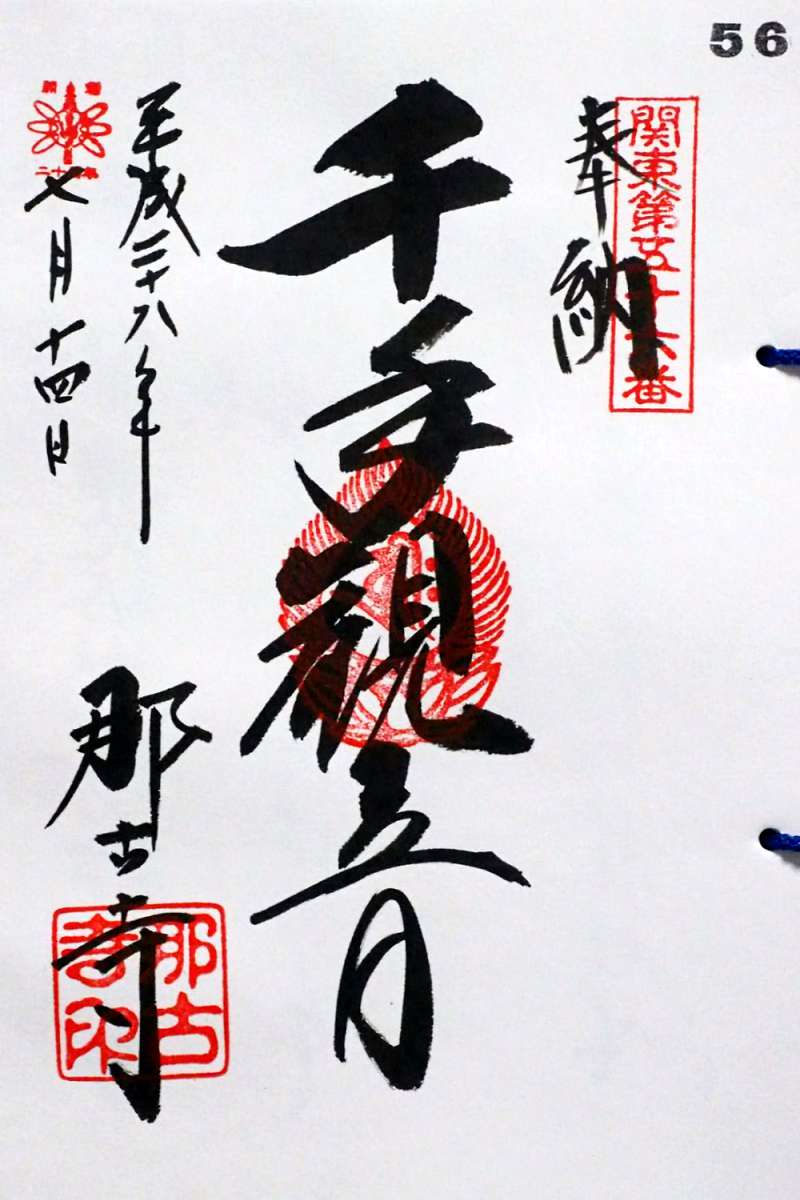 56
関東第五十六番
奉納
千手観音
平成二十八年
七月十四日
那古寺
那古